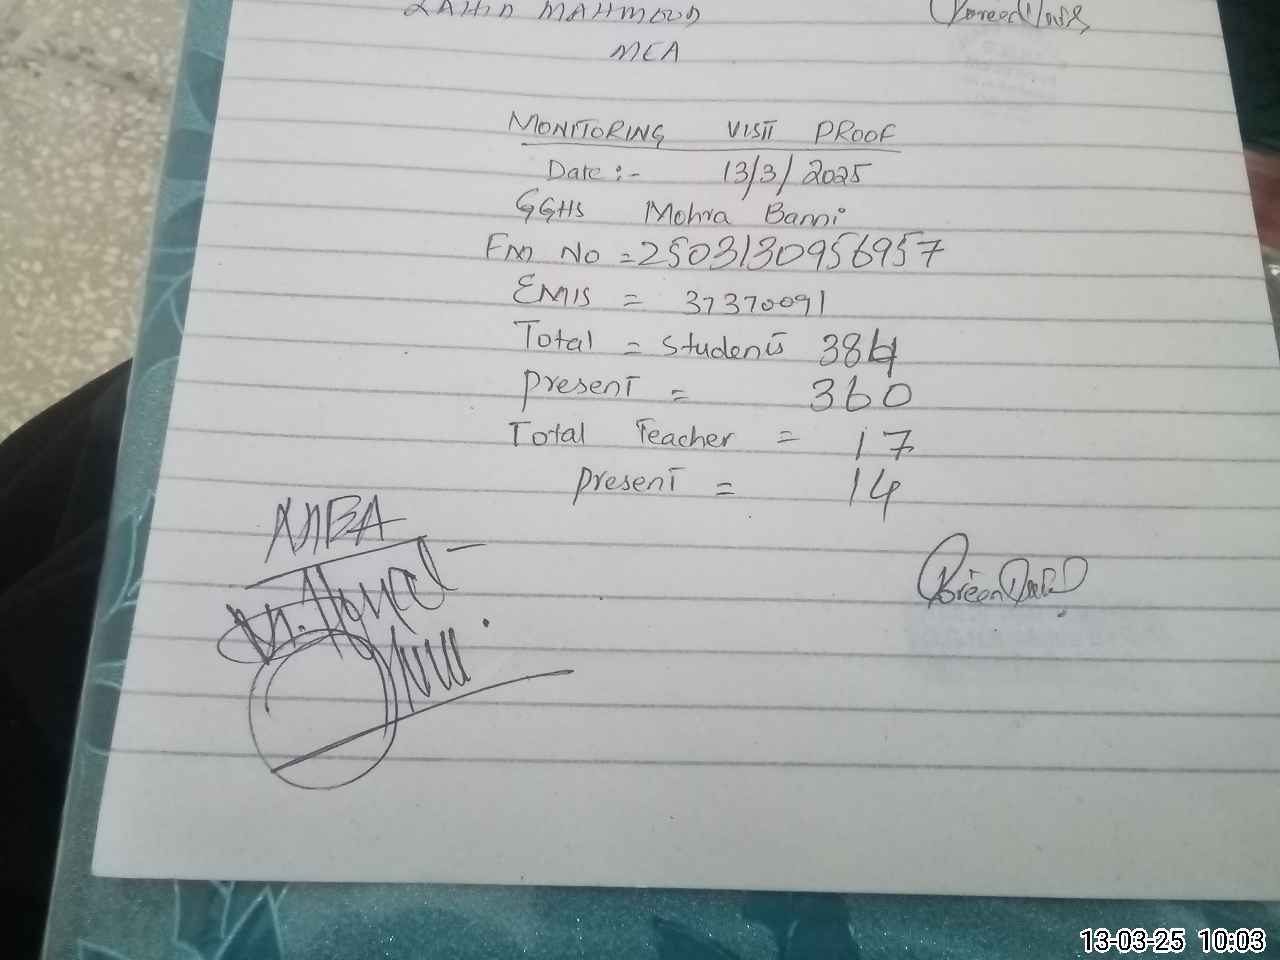 MAHMOOD
MEA
MONITORING VISIT PROOF
Date :- 13/3/2025
GGHS Mohra Banni
EM No = 2503130956957
EMIS = 37370091
Total = Students 384
Present = 360
Total Teacher = 17
Present = 14
13-03-25 10:03